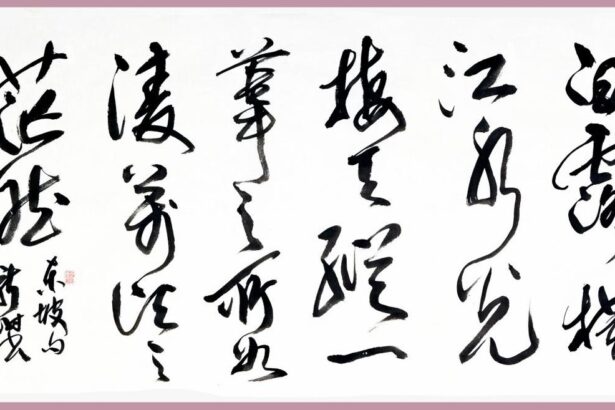 白露橫
江水光
接天縱一
葦之所如
凌萬頃之
茫然
东坡句